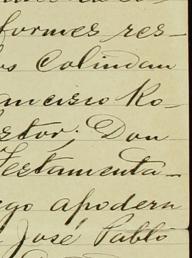 formes res-
os Colindan
ancisco Ro-
stor; Don
Testamenta-
go apodera
José Pablo